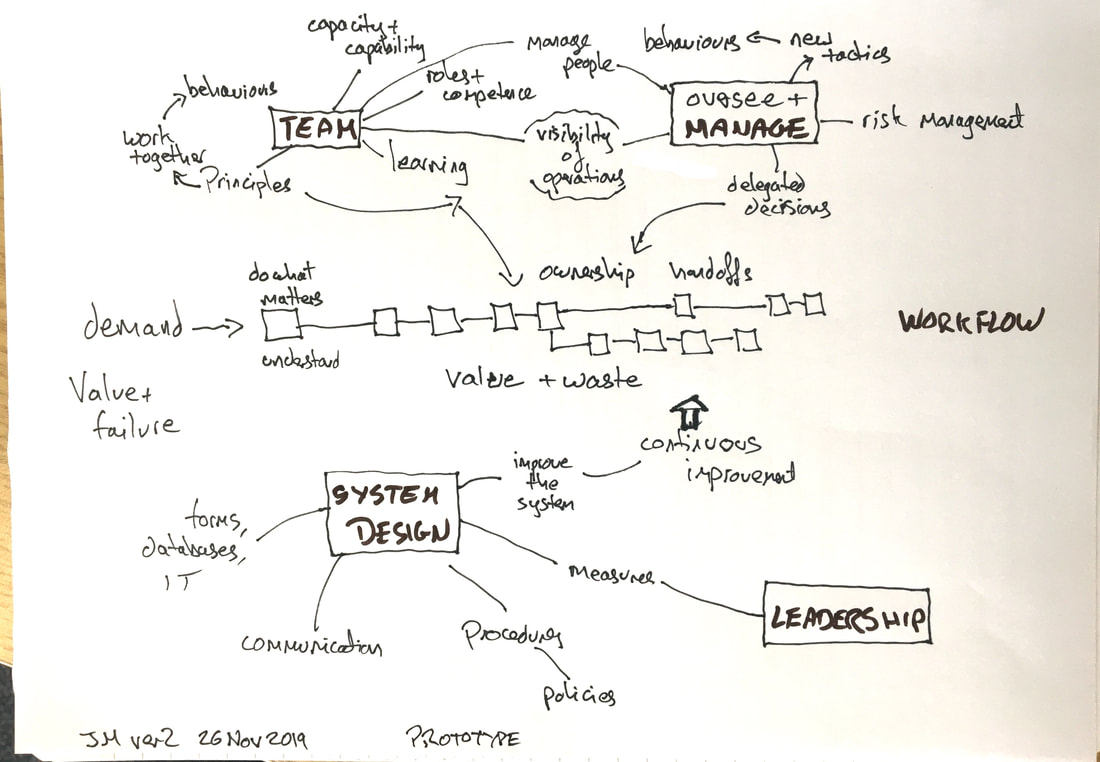 capacity +
capability
manage
people
behaviours
new
tactics
behaviours
roles +
competence
oversee +
MANAGE
risk management
TEAM
work
together
visibility
of
operations
learning
Principles
delegated
decisions
do what
matters
ownership
handoffs
demand
understand
WORKFLOW
value + waste
Value +
failure
continuous
improvement
improve
the
system
SYSTEM
DESIGN
forms,
databases,
IT
measures
LEADERSHIP
communication
Procedures
policies
JM ver2 26 Nov 2019
PROTOTYPE